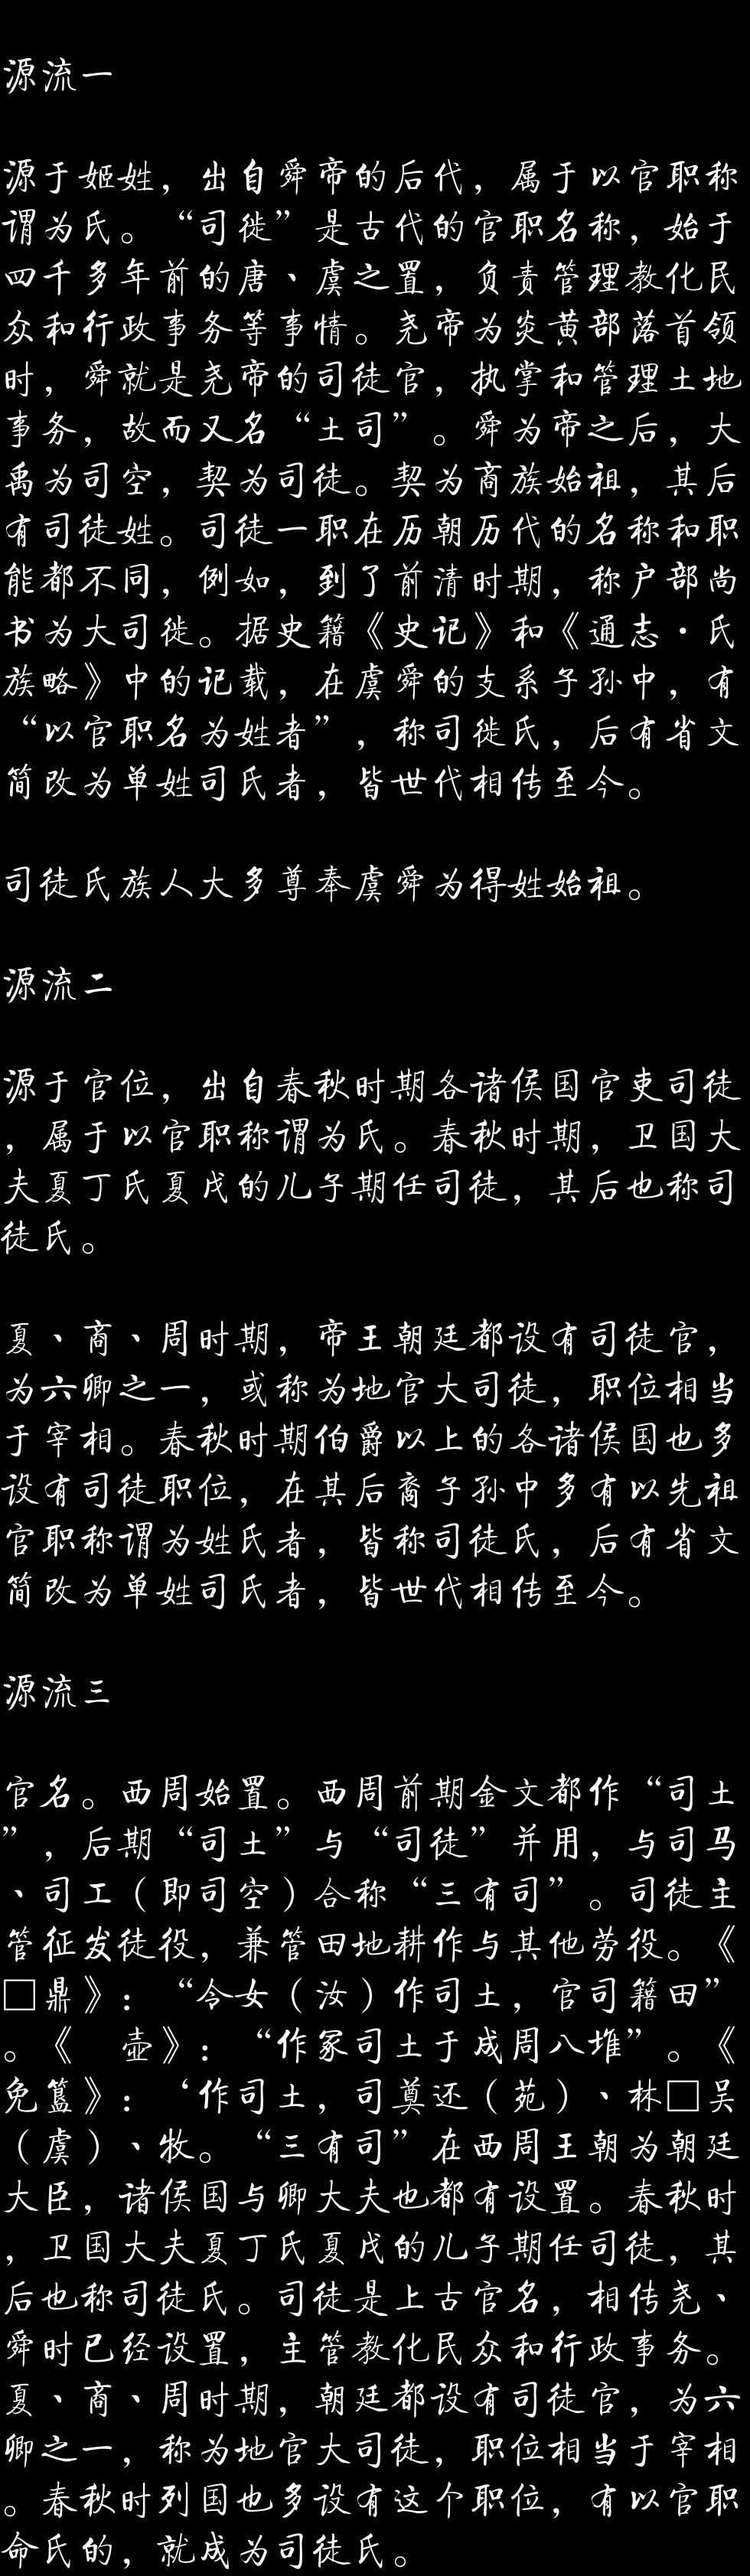 源流一
源于姬姓，出自舜帝的后代，属于以官职称
谓为氏。“司徙”是古代的官职名称，始于
四千多年前的唐、虞之置，负责管理教化民
众和行政事务等事情。尧帝为炎黄部落首领
时，舜就是尧帝的司徒官，执掌和管理土地
事务，故而又名“土司”。舜为帝之后，大
禹为司空，契为司徒。契为商族始祖，其后
有司徒姓。司徒一职在历朝历代的名称和职
能都不同，例如，到了前清时期，称户部尚
书为大司徙。据史籍《史记》和《通志·氏
族略》中的记载，在虞舜的支系子孙中，有
“以官职名为姓者”，称司徙氏，后有省文
简改为单姓司氏者，皆世代相传至今。
司徒氏族人大多尊奉虞舜为得姓始祖。
源流二
源于官位，出自春秋时期各诸侯国官吏司徒
，属于以官职称谓为氏。春秋时期，卫国大
夫夏丁氏夏戊的儿子期任司徒，其后也称司
徒氏。
夏、商、周时期，帝王朝廷都设有司徒官，
为六卿之一，或称为地官大司徒，职位相当
于宰相。春秋时期伯爵以上的各诸侯国也多
设有司徒职位，在其后裔子孙中多有以先祖
官职称谓为姓氏者，皆称司徒氏，后有省文
简改为单姓司氏者，皆世代相传至今。
源流三
官名。西周始置。西周前期金文都作“司土
”，后期“司土”与“司徒”并用，与司马
、司工（即司空）合称“三有司”。司徒主
管征发徒役，兼管田地耕作与其他劳役。《
□鼎》：“令女（汝）作司土，官司籍田”
。《　壶》：“作冢司土于成周八堆”。《
免簋》：‘作司土，司奠还（苑）、林□吴
（虞）、牧。“三有司”在西周王朝为朝廷
大臣，诸侯国与卿大夫也都有设置。春秋时
，卫国大夫夏丁氏夏戊的儿子期任司徒，其
后也称司徒氏。司徒是上古官名，相传尧、
舜时已经设置，主管教化民众和行政事务。
夏、商、周时期，朝廷都设有司徒官，为六
卿之一，称为地官大司徒，职位相当于宰相
。春秋时列国也多设有这个职位，有以官职
命氏的，就成为司徒氏。